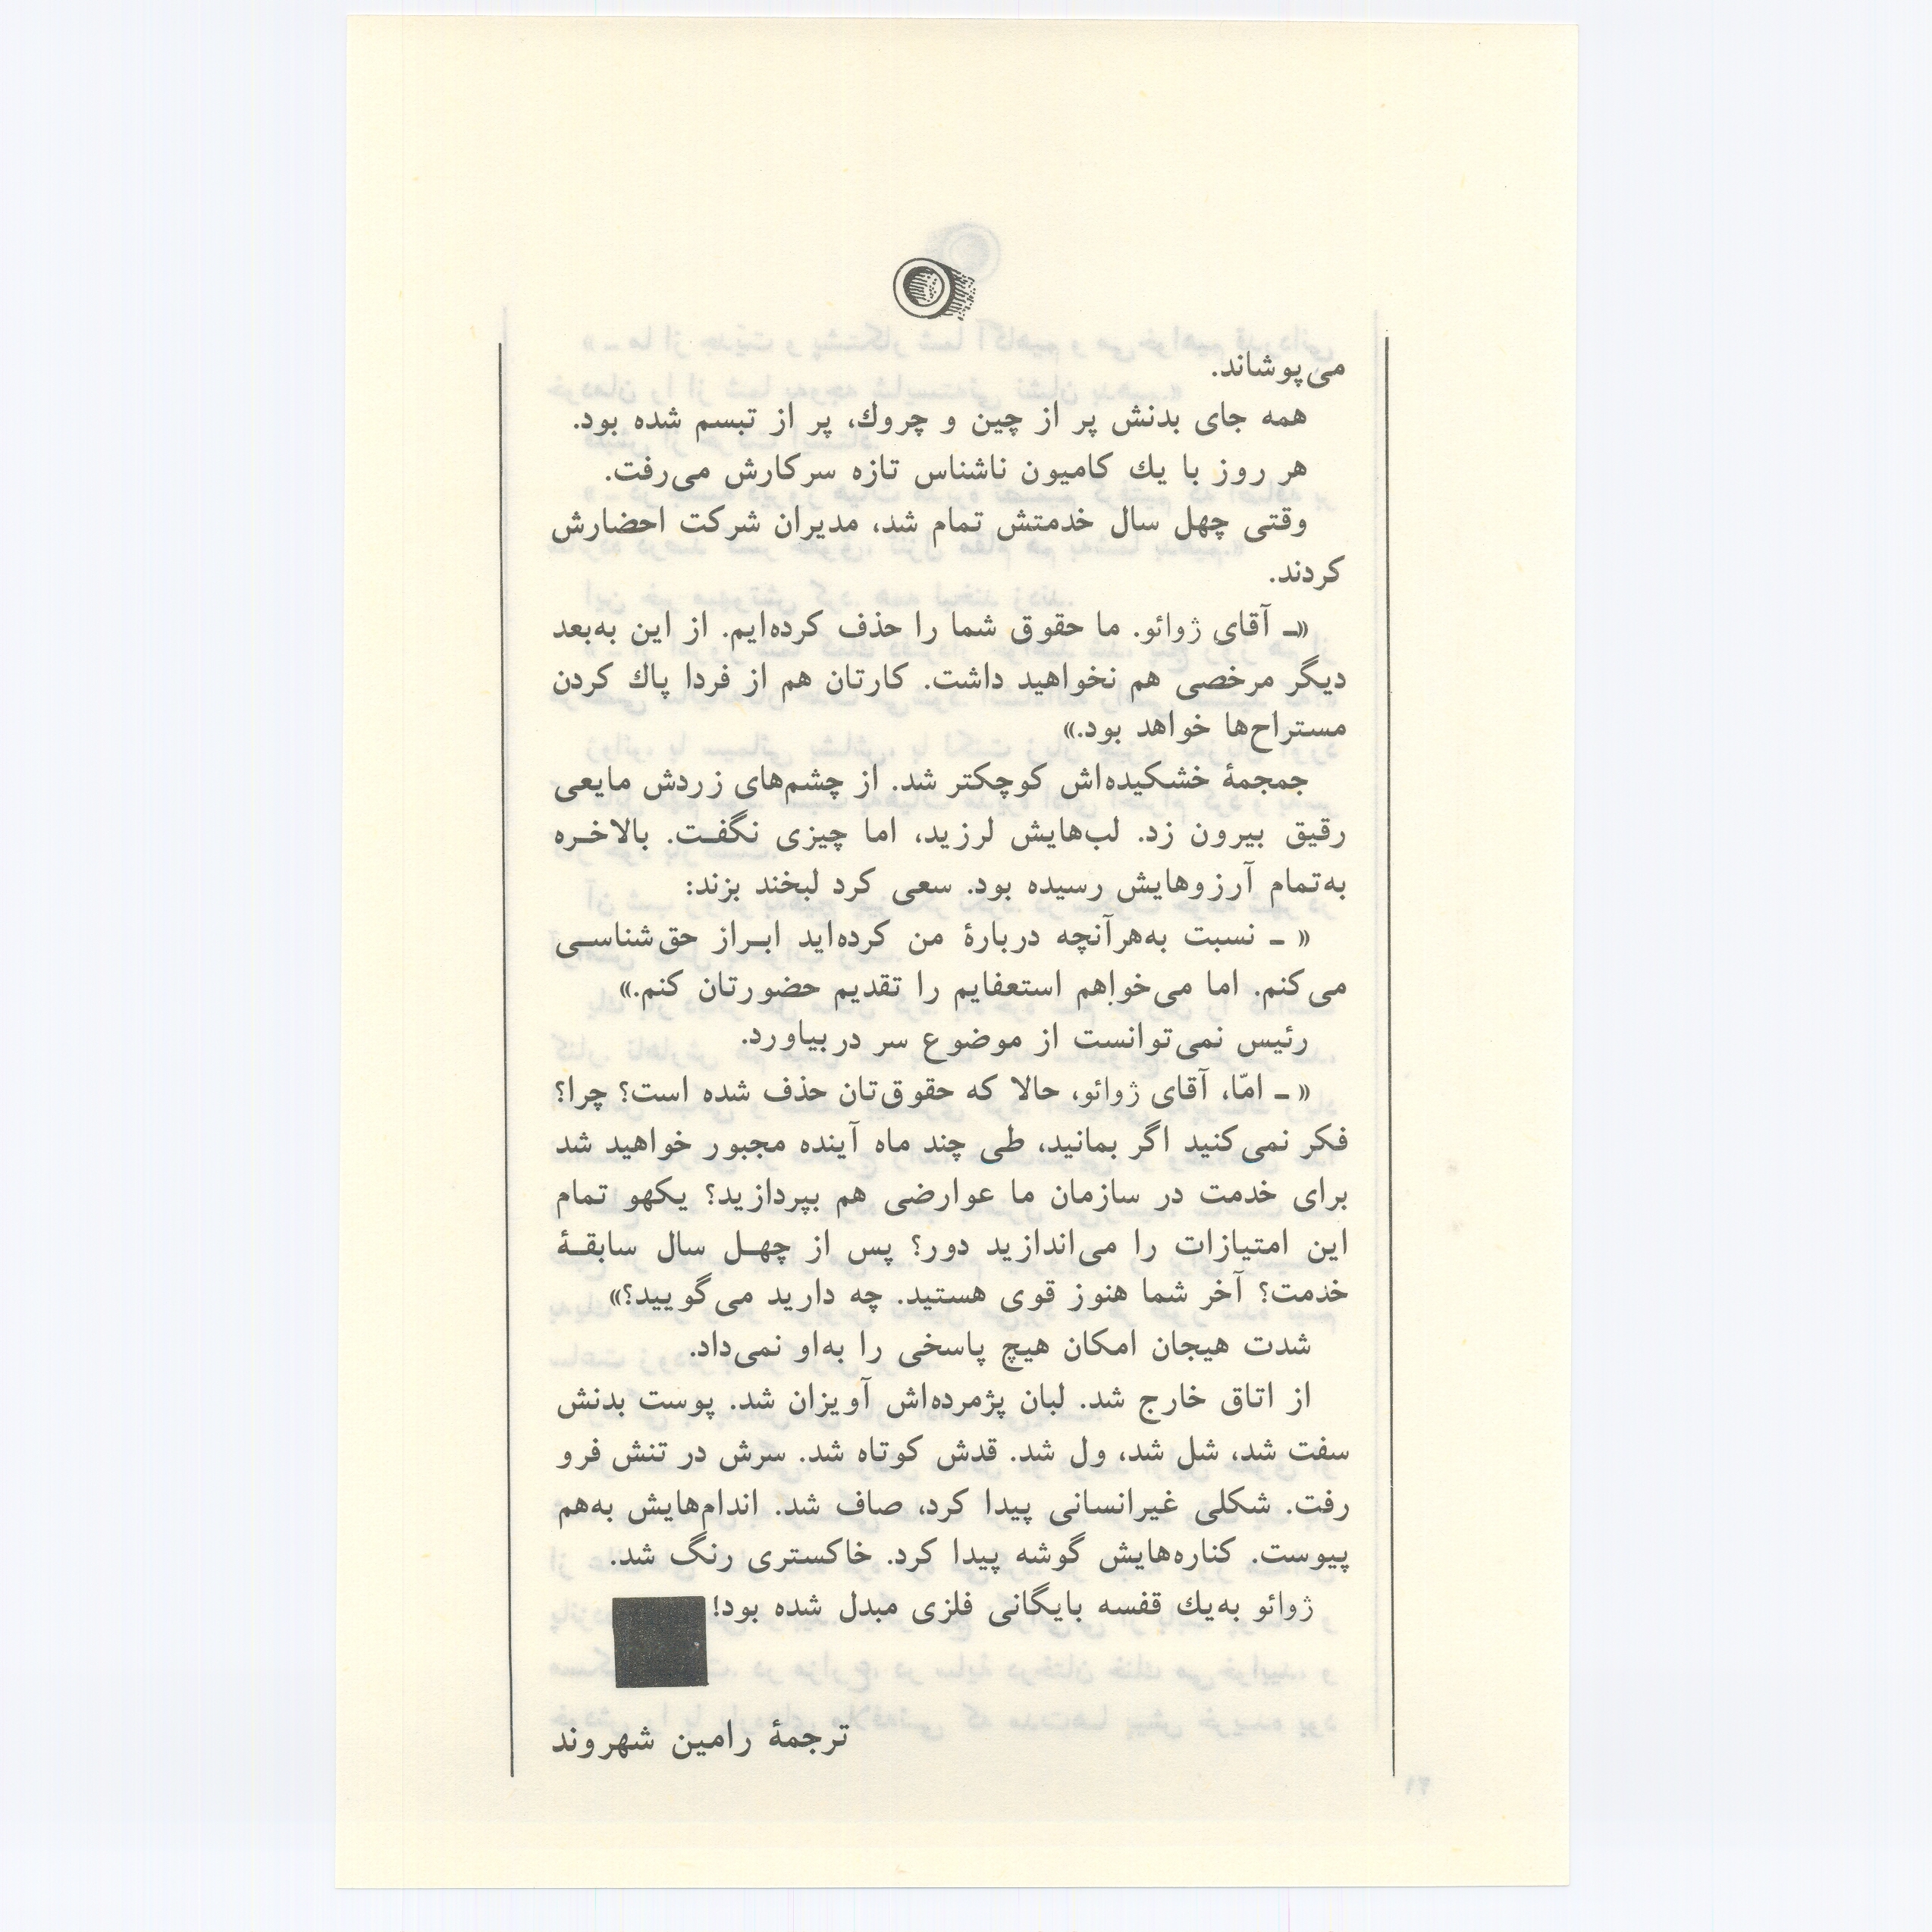 می‌پوشاند.
همه جای بدنش پر از چین و چروك، پر از تبسم شده بود.
هر روز با یك كامیون ناشناس تازه سركارش می‌رفت.
وقتی چهل سال خدمتش تمام شد، مدیران شركت احضارش
كردند.
«ـ آقای ژوائو. ما حقوق شما را حذف كرده‌ایم. از این به‌بعد
دیگر مرخصی هم نخواهید داشت. كارتان هم از فردا پاك كردن
مستراح‌ها خواهد بود.»
جمجمهٔ خشكیده‌اش كوچكتر شد. از چشم‌های زردش مایعی
رقیق بیرون زد. لب‌هایش لرزید، اما چیزی نگفـت. بالاخـره
به‌تمام آرزوهایش رسیده بود. سعی كرد لبخند بزند:
« ـ نسبت به‌هرآنچه دربارهٔ من كرده‌اید ابـراز حق‌شناسـی
می‌كنم. اما می‌خواهم استعفایم را تقدیم حضورتان كنم.»
رئیس نمی‌توانست از موضوع سر دربیاورد.
« ـ امّا، آقای ژوائو، حالا كه حقوق‌تان حذف شده است؟ چرا؟
فكر نمی‌كنید اگر بمانید، طی چند ماه آینده مجبور خواهید شد
برای خدمت در سازمان ما عوارضی هم بپردازید؟ یكهو تمام
این امتیازات را می‌اندازید دور؟ پس از چهـل سال سابقـهٔ
خدمت؟ آخر شما هنوز قوی هستید. چه دارید می‌گویید؟»
شدت هیجان امكان هیچ پاسخی را به‌او نمی‌داد.
از اتاق خارج شد. لبان پژمرده‌اش آویزان شد. پوست بدنش
سفت شد، شل شد، ول شد. قدش كوتاه شد. سرش در تنش فرو
رفت. شكلی غیرانسانی پیدا كرد، صاف شد. اندام‌هایش به‌هم
پیوست. كناره‌هایش گوشه پیدا كرد. خاكستری رنگ شد.
ژوائو به‌یك قفسه بایگانی فلزی مبدل شده بود!
ترجمهٔ رامین شهروند